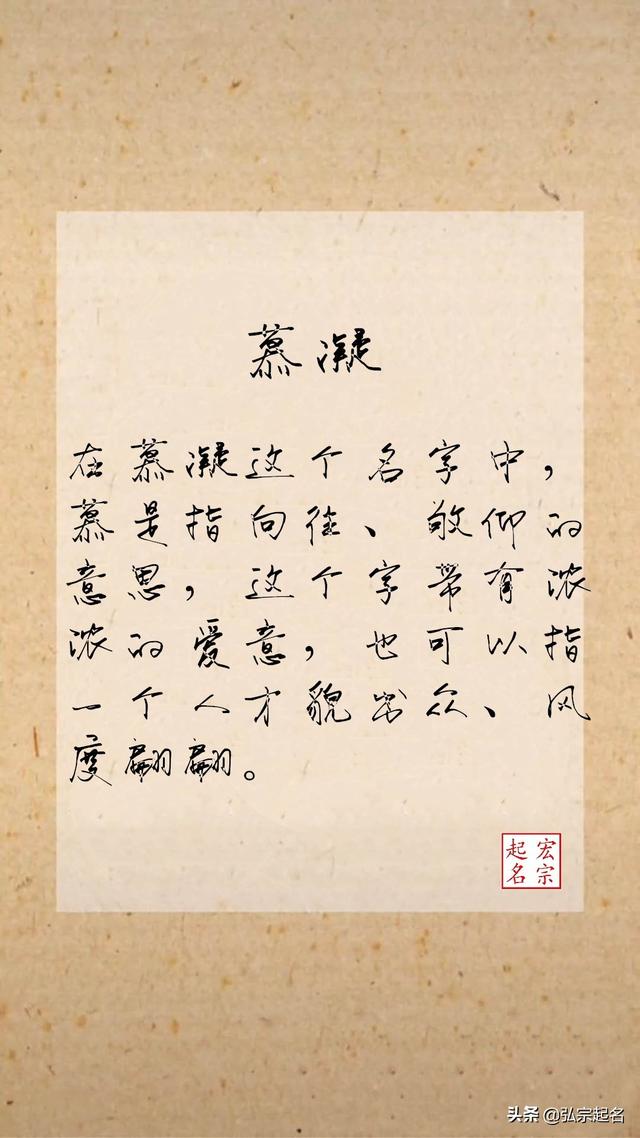 慕凝
在慕凝这个名字中，
慕是指向往、敬仰的
意思，这个字带有浓
浓的爱意，也可以指
一个人才貌出众、风
度翩翩。
宏宗
起名
头条 @弘宗起名